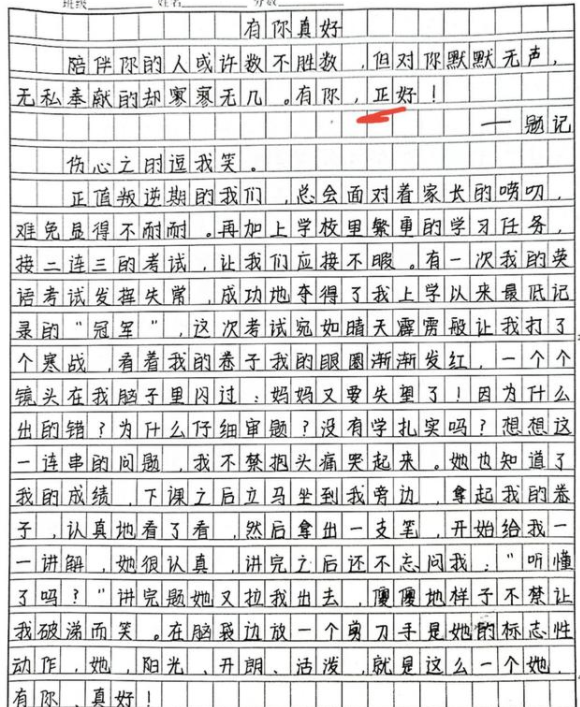 班级 姓名 分数
有你真好
陪伴你的人或许数不胜数,但对你默默无声,
无私奉献的却寥寥无几。有你,正好!
——题记
伤心之时逗我笑。
正值叛逆期的我们,总会面对着家长的唠叨,
难免显得不耐耐。再加上学校里繁重的学习任务,
接二连三的考试,让我们应接不暇。有一次我的英
语考试发挥失常,成功地夺得了我上学以来最低记
录的“冠军”,这次考试宛如晴天霹雳般让我打了
个寒战,看着我的卷子我的眼圈渐渐发红,一个个
镜头在我脑子里闪过:妈妈又要失望了!因为什么
出的错?为什么仔细审题?没有学扎实吗?想想这
一连串的问题,我不禁抱头痛哭起来。她也知道了
我的成绩,下课之后立马坐到我旁边,拿起我的卷
子,认真地看了看,然后拿出一支笔,开始给我一
一讲解,她很认真,讲完之后还不忘问我:“听懂
了吗?”讲完题她又拉我出去,傻傻地样子不禁让
我破涕而笑。在脑袋边放一个剪刀手是她的标志性
动作,她,阳光、开朗、活泼,就是这么一个她,
有你,真好!